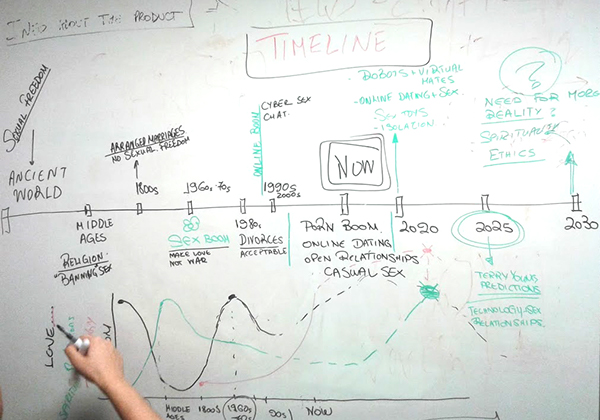 INFO ABOUT THE PRODUCT
TIMELINE
SEXUAL FREEDOM
ANCIENT
WORLD
ARRANGED MARRIAGES
NO SEXUAL FREEDOM
1800s
1960s-70s
ONLINE BOOM
CYBER SEX
CHAT.
1990s
2000s
NOW
- ROBOTS + VIRTUAL
MATES
- ONLINE DATING + SEX
SEX TOYS
- ISOLATION.
?
NEED FOR MORE
REALITY?
SPIRITUALITY
ETHICS
MIDDLE
AGES
RELIGION
"BANNING" SEX
SEX BOOM
MAKE LOVE
NOT WAR
1980s
DIVORCES
ACCEPTABLE
PORN BOOM.
ONLINE DATING
OPEN RELATIONSHIPS
CASUAL SEX
2020
2025
2030
TERRY YOUNG
PREDICTIONS
TECHNOLOGY-SEX
RELATIONSHIPS.
LOVE
MIDDLE
AGES
1800s
1960s
-70s
90s
NOW